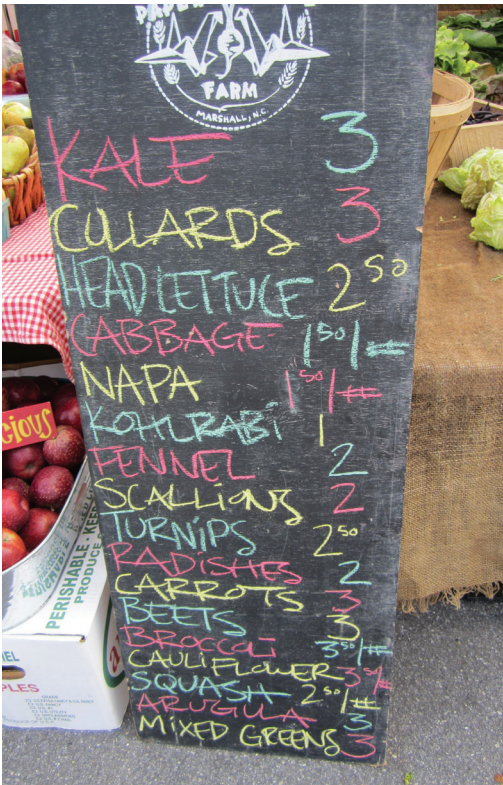 FARM
MARSHALL, N.C.
KALE 3
COLLARDS 3
HEAD LETTUCE 2 50
CABBAGE 1 50/#
NAPA 1 50/#
KOHLRABi 1
FENNEL 2
SCALLiONS 2
TURNiPS 2 50
RADiSHES 2
CARROTS 3
BEETS 3
BROCCOLi 3 50/#
CAULiFLOWER 3 50/#
SQUASH 2 50/#
ARUGULA 3
MiXED GREENS 3
CiOUS
PERISHABLE · KEEP
PRODUCE